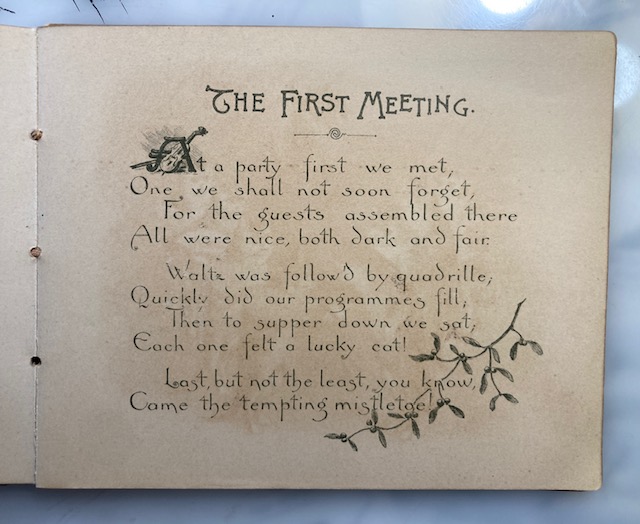 THE FIRST MEETING.
At a party first we met,
One we shall not soon forget,
For the guests assembled there
All were nice, both dark and fair.
Waltz was follow'd by quadrille;
Quickly did our programmes fill;
Then to supper down we sat;
Each one felt a lucky cat!
Last, but not the least, you know,
Came the tempting mistletoe!